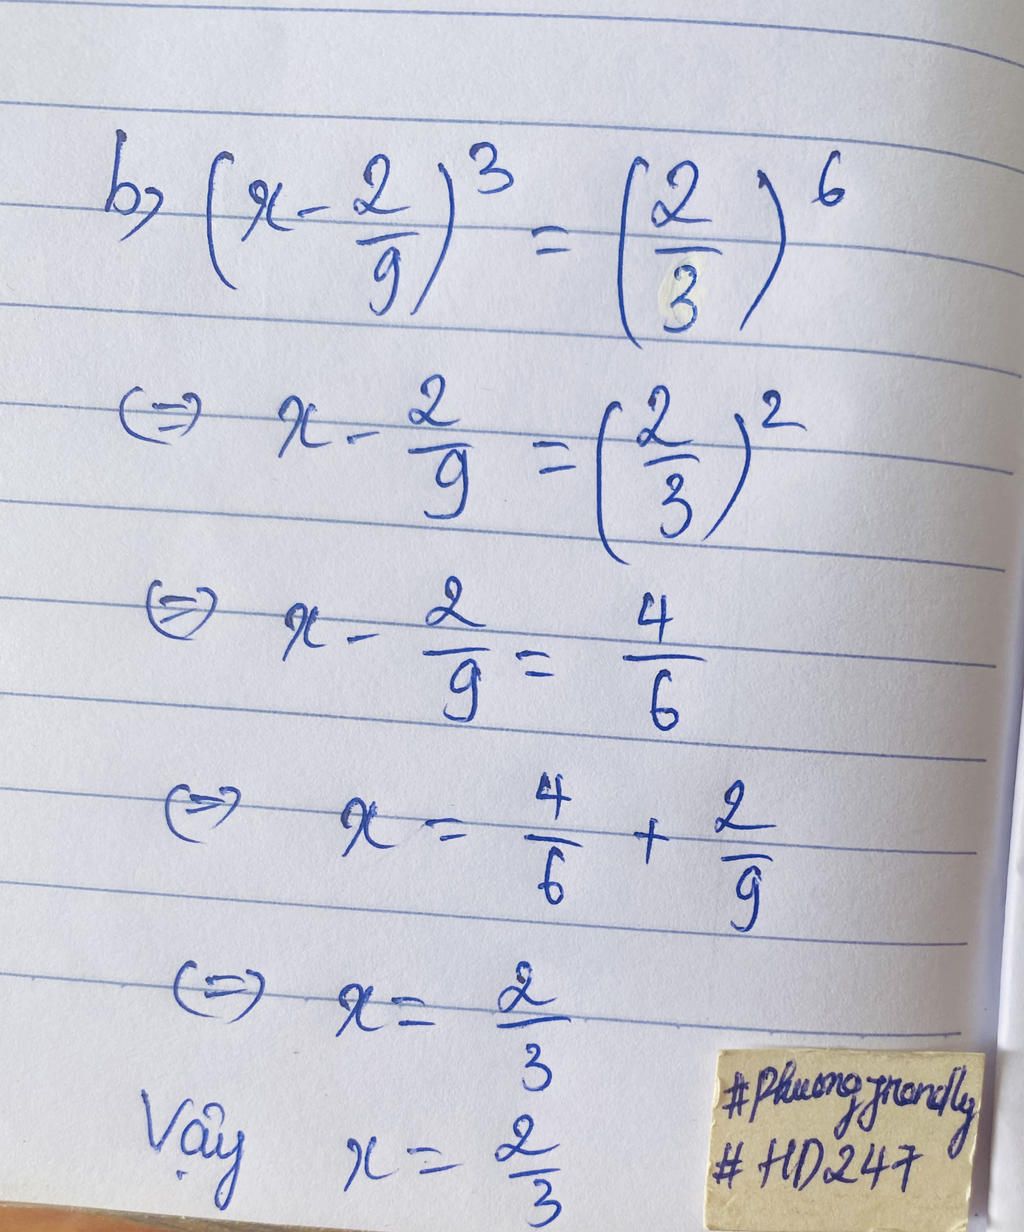 b, (x - 2/9)^3 = (2/3)^6
(=) x - 2/9 = (2/3)^2
(=) x - 2/9 = 4/6
(=) x = 4/6 + 2/9
(=) x = 2/3
Vậy x = 2/3
#Phuongfrendly
#HD247